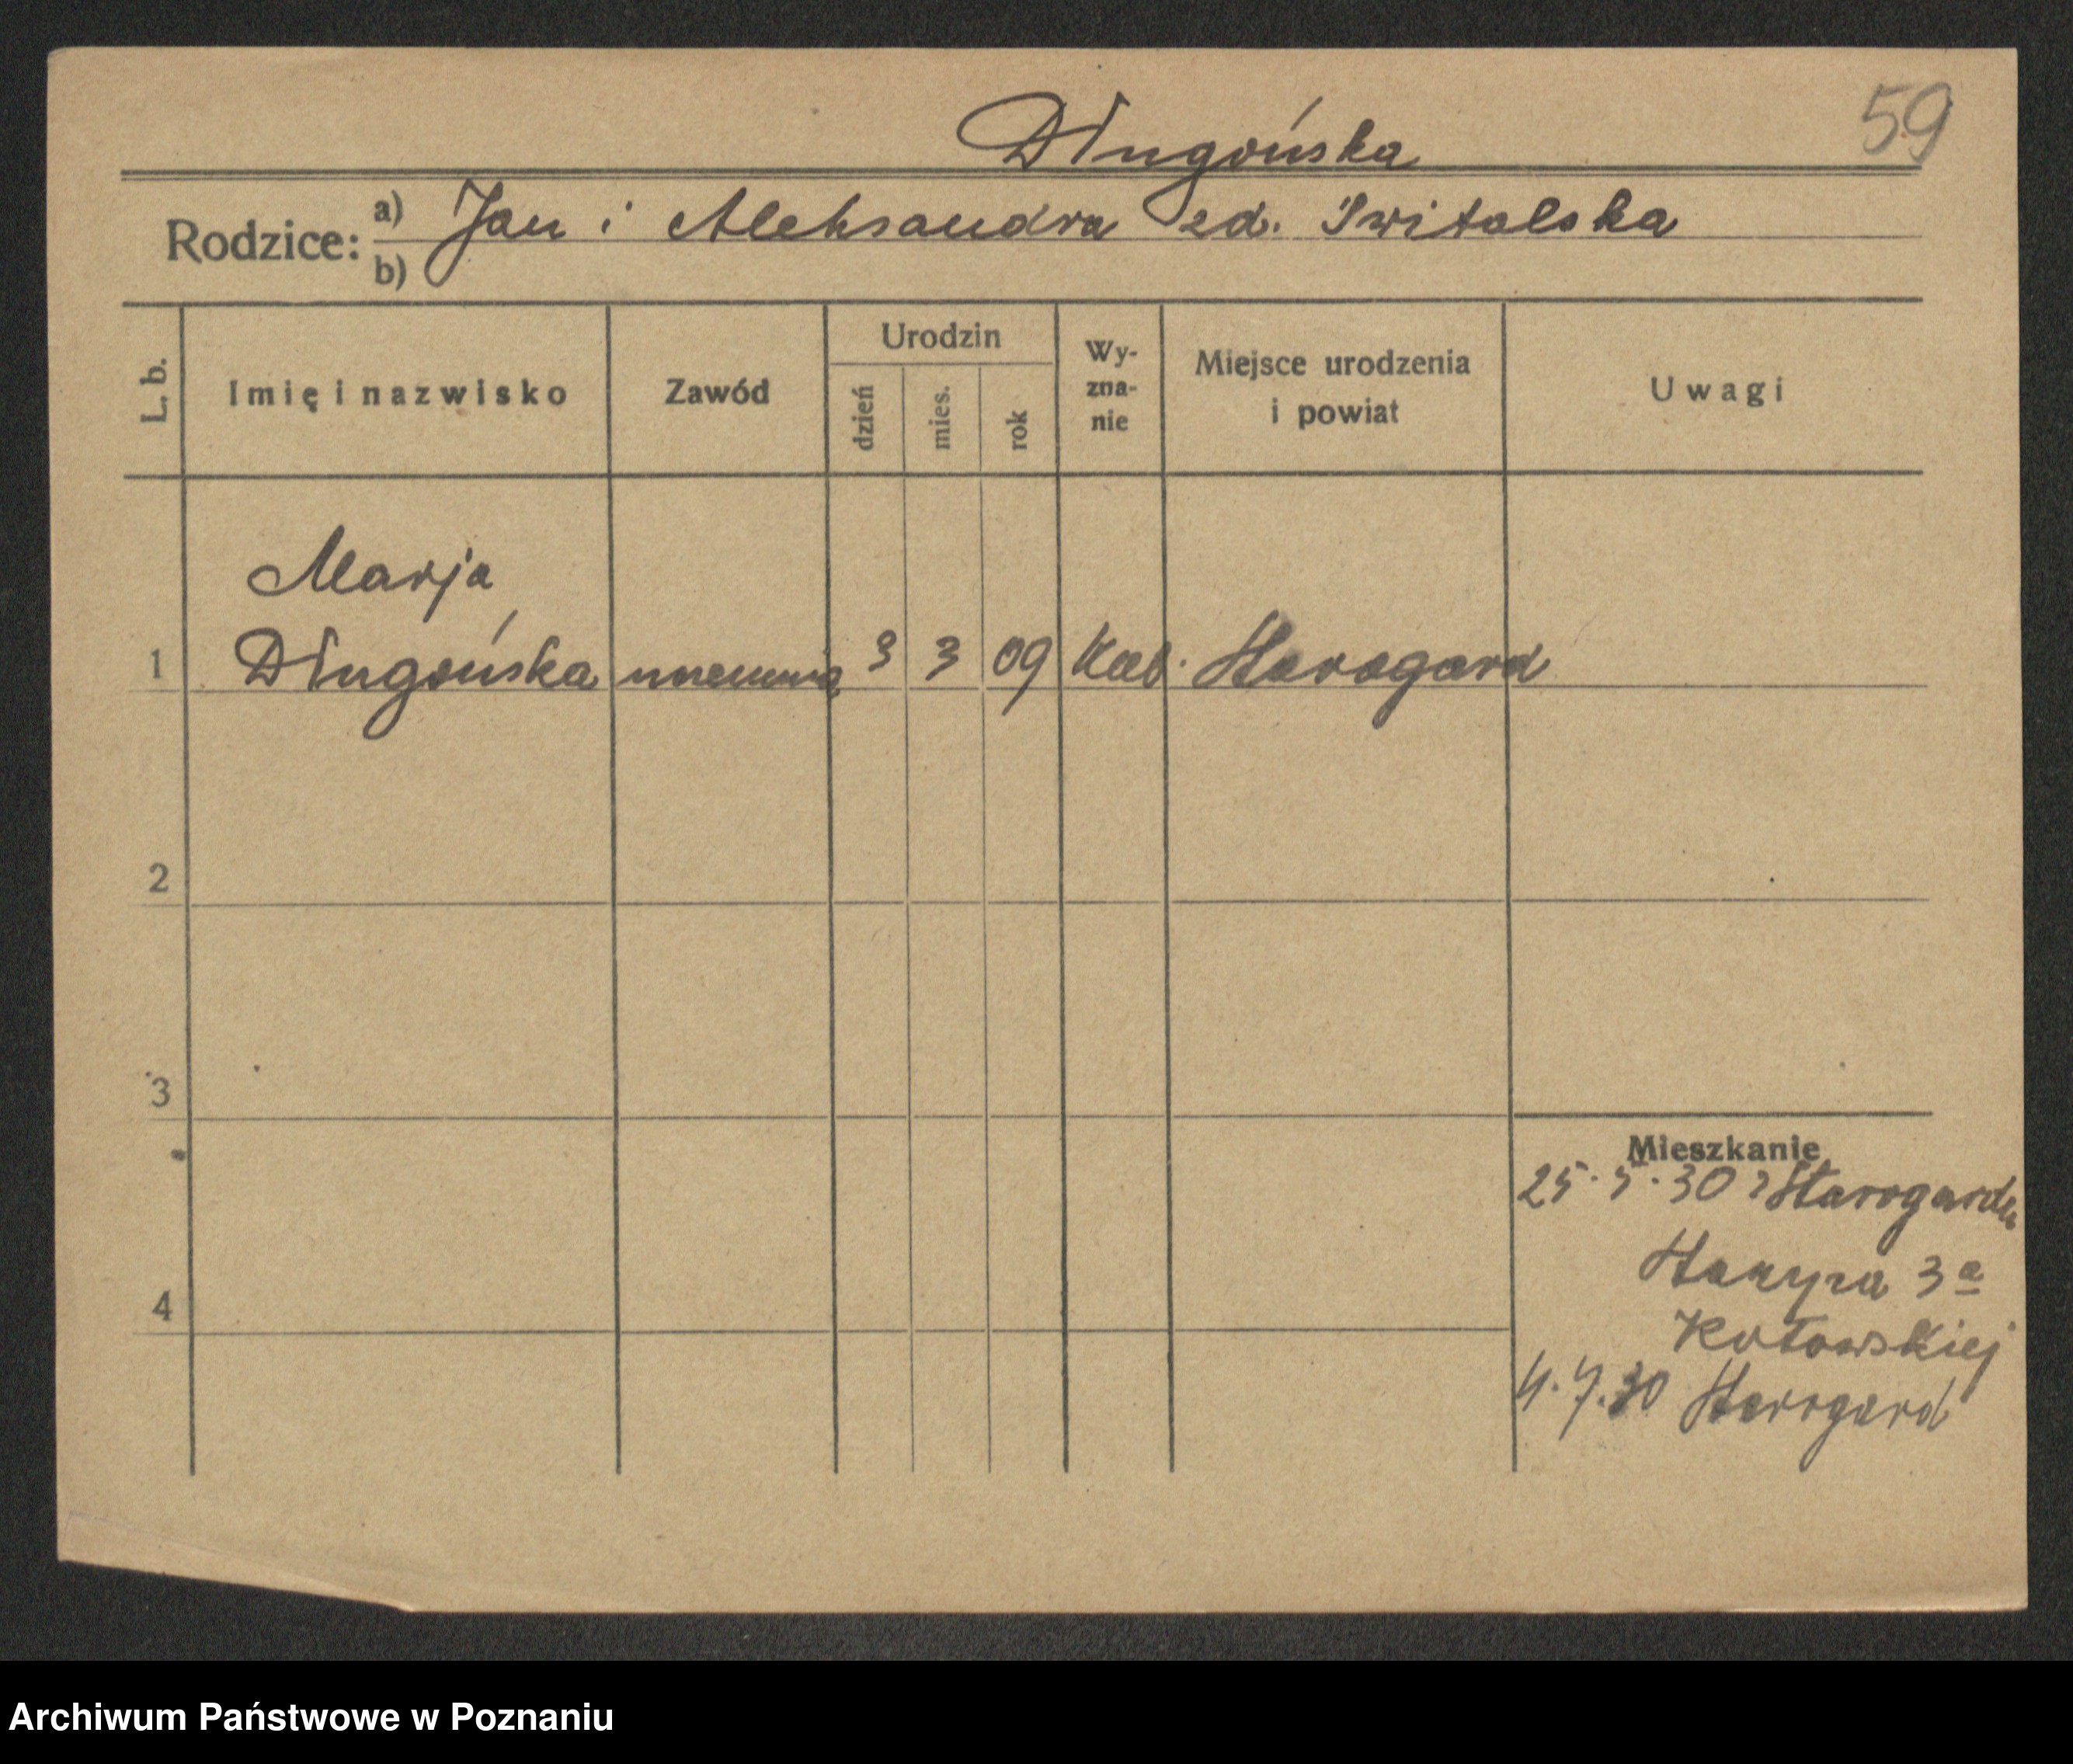 59
Długońska
Rodzice: a) Jan i Aleksandra zd. Switalska
b)
L. b. Imię i nazwisko Zawód Urodzin dzień mies. rok Wy-zna-nie Miejsce urodzenia i powiat Uwagi
Marja
1 Długońska uczennica 3 3 09 kat. Starogard
2
3
Mieszkanie
25.5.30 z Starogardu
4 3a
Kotowskiej
4.7.30 Starogard
Archiwum Państwowe w Poznaniu